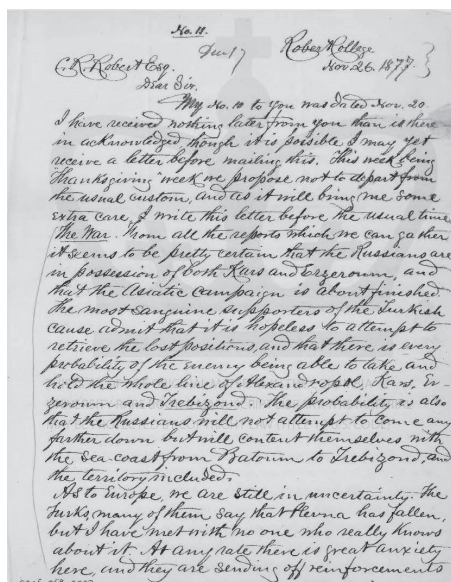 No. 11.
Dec 17
Robert College
Nov. 26. 1877.
C. R. Robert Esq.
Dear Sir.
My No. 10 to you was dated Nov. 20.
I have received nothing later from you than is there
in acknowledged though it is possible I may yet
receive a letter before mailing this. This week being
"Thanksgiving" week we propose not to depart from
the usual custom, and as it will bring me some
extra care, I write this letter before the usual time
The War. From all the reports which we can gather
it seems to be pretty certain that the Russians are
in possession of both Kars and Erzeroum, and
that the Asiatic Campaign is about finished.
The most sanguine supporters of the Turkish
cause admit that it is hopeless to attempt to
retrieve the lost positions, and that there is every
probability of the enemy being able to take and
hold the whole line of Alexandropol, Kars, Er-
zeroum and Trebizond. The probability is also
that the Russians will not attempt to come any
farther down but will content themselves with
the sea-coast from Batoum to Trebizond, and
the territory included.
As to Europe, we are still in uncertainty. The
Turks, many of them say that Plevna has fallen,
but I have met with no one who really knows
about it. At any rate there is great anxiety
here, and they are sending off reinforcements